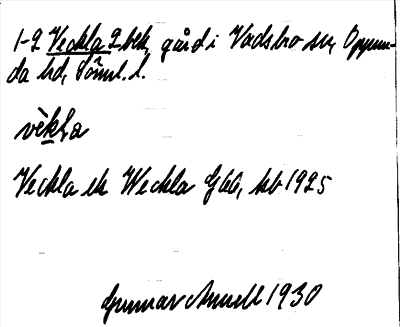 1-2 Veckla 2 bek, gård i Vadsbro sn, Oppun-
da hd, Söml. l.
vèkla
Veckla ek Weckla G 66, kb 1925
Gunnar Anuell 1930